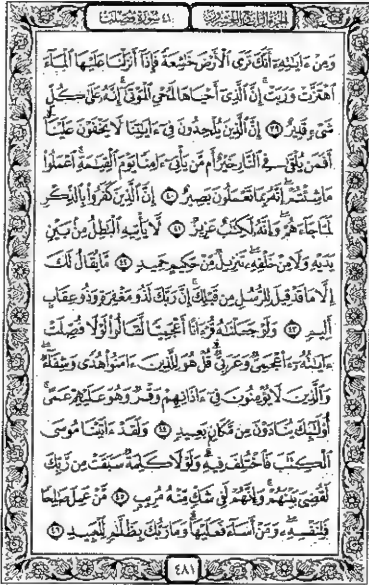 الجزء الرابع والعشرون ٤١ سورة فصلت
وَمِنْ ءَايَٰتِهِۦٓ أَنَّكَ تَرَى ٱلْأَرْضَ خَٰشِعَةً فَإِذَآ أَنزَلْنَا عَلَيْهَا ٱلْمَآءَ
ٱهْتَزَّتْ وَرَبَتْ ۚ إِنَّ ٱلَّذِىٓ أَحْيَاهَا لَمُحْىِ ٱلْمَوْتَىٰٓ ۚ إِنَّهُۥ عَلَىٰ كُلِّ
شَىْءٍ قَدِيرٌ ٣٩ إِنَّ ٱلَّذِينَ يُلْحِدُونَ فِىٓ ءَايَٰتِنَا لَا يَخْفَوْنَ عَلَيْنَآ ۗ
أَفَمَن يُلْقَىٰ فِى ٱلنَّارِ خَيْرٌ أَم مَّن يَأْتِىٓ ءَامِنًا يَوْمَ ٱلْقِيَٰمَةِ ۚ ٱعْمَلُوا۟
مَا شِئْتُمْ ۖ إِنَّهُۥ بِمَا تَعْمَلُونَ بَصِيرٌ ٤٠ إِنَّ ٱلَّذِينَ كَفَرُوا۟ بِٱلذِّكْرِ
لَمَّا جَآءَهُمْ ۖ وَإِنَّهُۥ لَكِتَٰبٌ عَزِيزٌ ٤١ لَّا يَأْتِيهِ ٱلْبَٰطِلُ مِنۢ بَيْنِ
يَدَيْهِ وَلَا مِنْ خَلْفِهِۦ ۖ تَنزِيلٌ مِّنْ حَكِيمٍ حَمِيدٍ ٤٢ مَّا يُقَالُ لَكَ
إِلَّا مَا قَدْ قِيلَ لِلرُّسُلِ مِن قَبْلِكَ ۚ إِنَّ رَبَّكَ لَذُو مَغْفِرَةٍ وَذُو عِقَابٍ
أَلِيمٍ ٤٣ وَلَوْ جَعَلْنَٰهُ قُرْءَانًا أَعْجَمِيًّا لَّقَالُوا۟ لَوْلَا فُصِّلَتْ
ءَايَٰتُهُۥٓ ۖ ءَا۬عْجَمِىٌّ وَعَرَبِىٌّ ۗ قُلْ هُوَ لِلَّذِينَ ءَامَنُوا۟ هُدًى وَشِفَآءٌ ۖ
وَٱلَّذِينَ لَا يُؤْمِنُونَ فِىٓ ءَاذَانِهِمْ وَقْرٌ وَهُوَ عَلَيْهِمْ عَمًى ۚ
أُو۟لَٰٓئِكَ يُنَادَوْنَ مِن مَّكَانٍۭ بَعِيدٍ ٤٤ وَلَقَدْ ءَاتَيْنَا مُوسَى
ٱلْكِتَٰبَ فَٱخْتُلِفَ فِيهِ ۗ وَلَوْلَا كَلِمَةٌ سَبَقَتْ مِن رَّبِّكَ
لَقُضِىَ بَيْنَهُمْ ۚ وَإِنَّهُمْ لَفِى شَكٍّ مِّنْهُ مُرِيبٍ ٤٥ مَّنْ عَمِلَ صَٰلِحًا
فَلِنَفْسِهِۦ ۖ وَمَنْ أَسَآءَ فَعَلَيْهَا ۗ وَمَا رَبُّكَ بِظَلَّٰمٍ لِّلْعَبِيدِ ٤٦
٤٨١